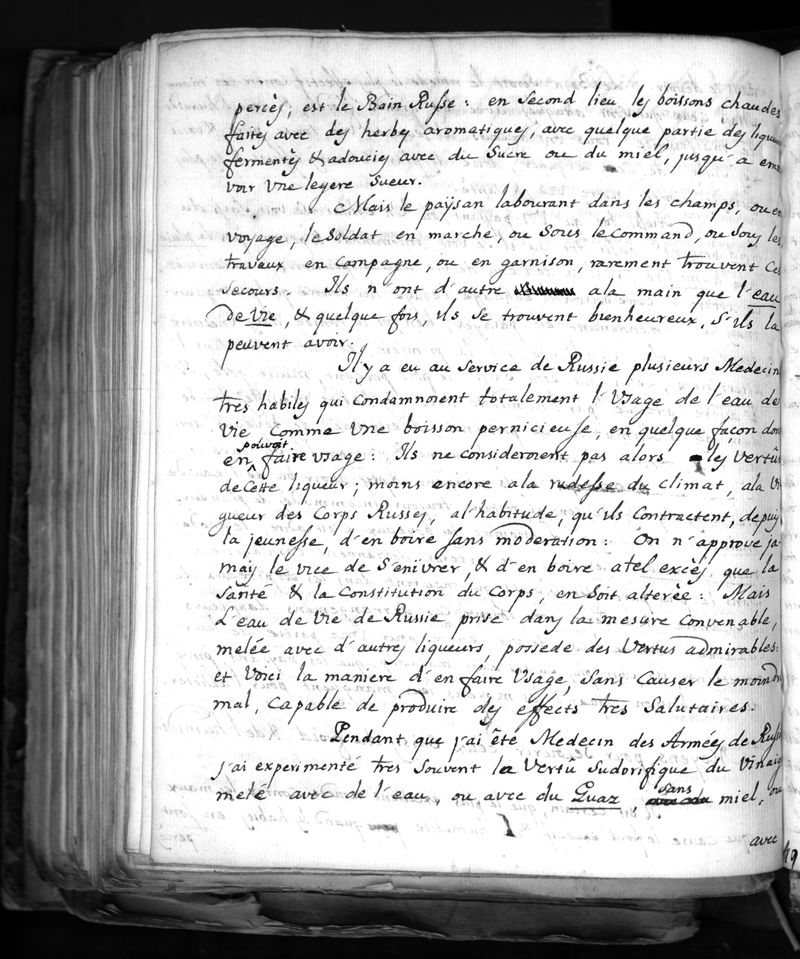 percés, est le Bain Russe : en second lieu les boissons chaudes
faites avec des herbes aromatiques, avec quelque partie des lique
fermentés & adoucies avec du Sucre ou du miel, jusqu'a emo
voir une legere Sueur.
Mais le paysan labourant dans les champs, ou en
voyage, le Soldat en marche, ou Sous le command, ou Sous les
traveux en campagne, ou en garnison, rarement trouvent ces
secours. Ils n'ont d'autre a la main que l'eau
de Vie, & quelque fois, ils se trouvent bienheureux, S'ils la
peuvent avoir.
Il y a eu au service de Russie plusieurs Medecin
tres habiles qui condamnoient totalement l'Usage de l'eau de
Vie comme une boisson pernicieuse, en quelque façon don
pouvoit
en faire usage : Ils ne consideroient pas alors les Vertûs
de Cette liqueur ; moins encore a la rudesse du climat, a la Vi
gueur des Corps Russes, a l'habitude, qu'ils Contractent, depuis
la jeunesse, d'en boire sans moderation : On n'approve ja
mays le vice de S'enivrer, & d'en boire a tel excés, que la
Santé & la Constitution du Corps, en Soit alterée : Mais
L'eau de Vie de Russie prise dans la mesure convenable,
melée avec d'autres liqueurs, possede des Vertus admirables :
et Voici la maniere d'en faire Usage, Sans Causer le moindr
mal, Capable de produire des effects tres Salutaires.
Pendant que j'ai été Medecin des Armées de Russi
j'ai experimenté tres Souvent la Vertû Sudorifique du Vinaig
melé avec de l'eau, ou avec du Quaz, sans miel, ou
avec